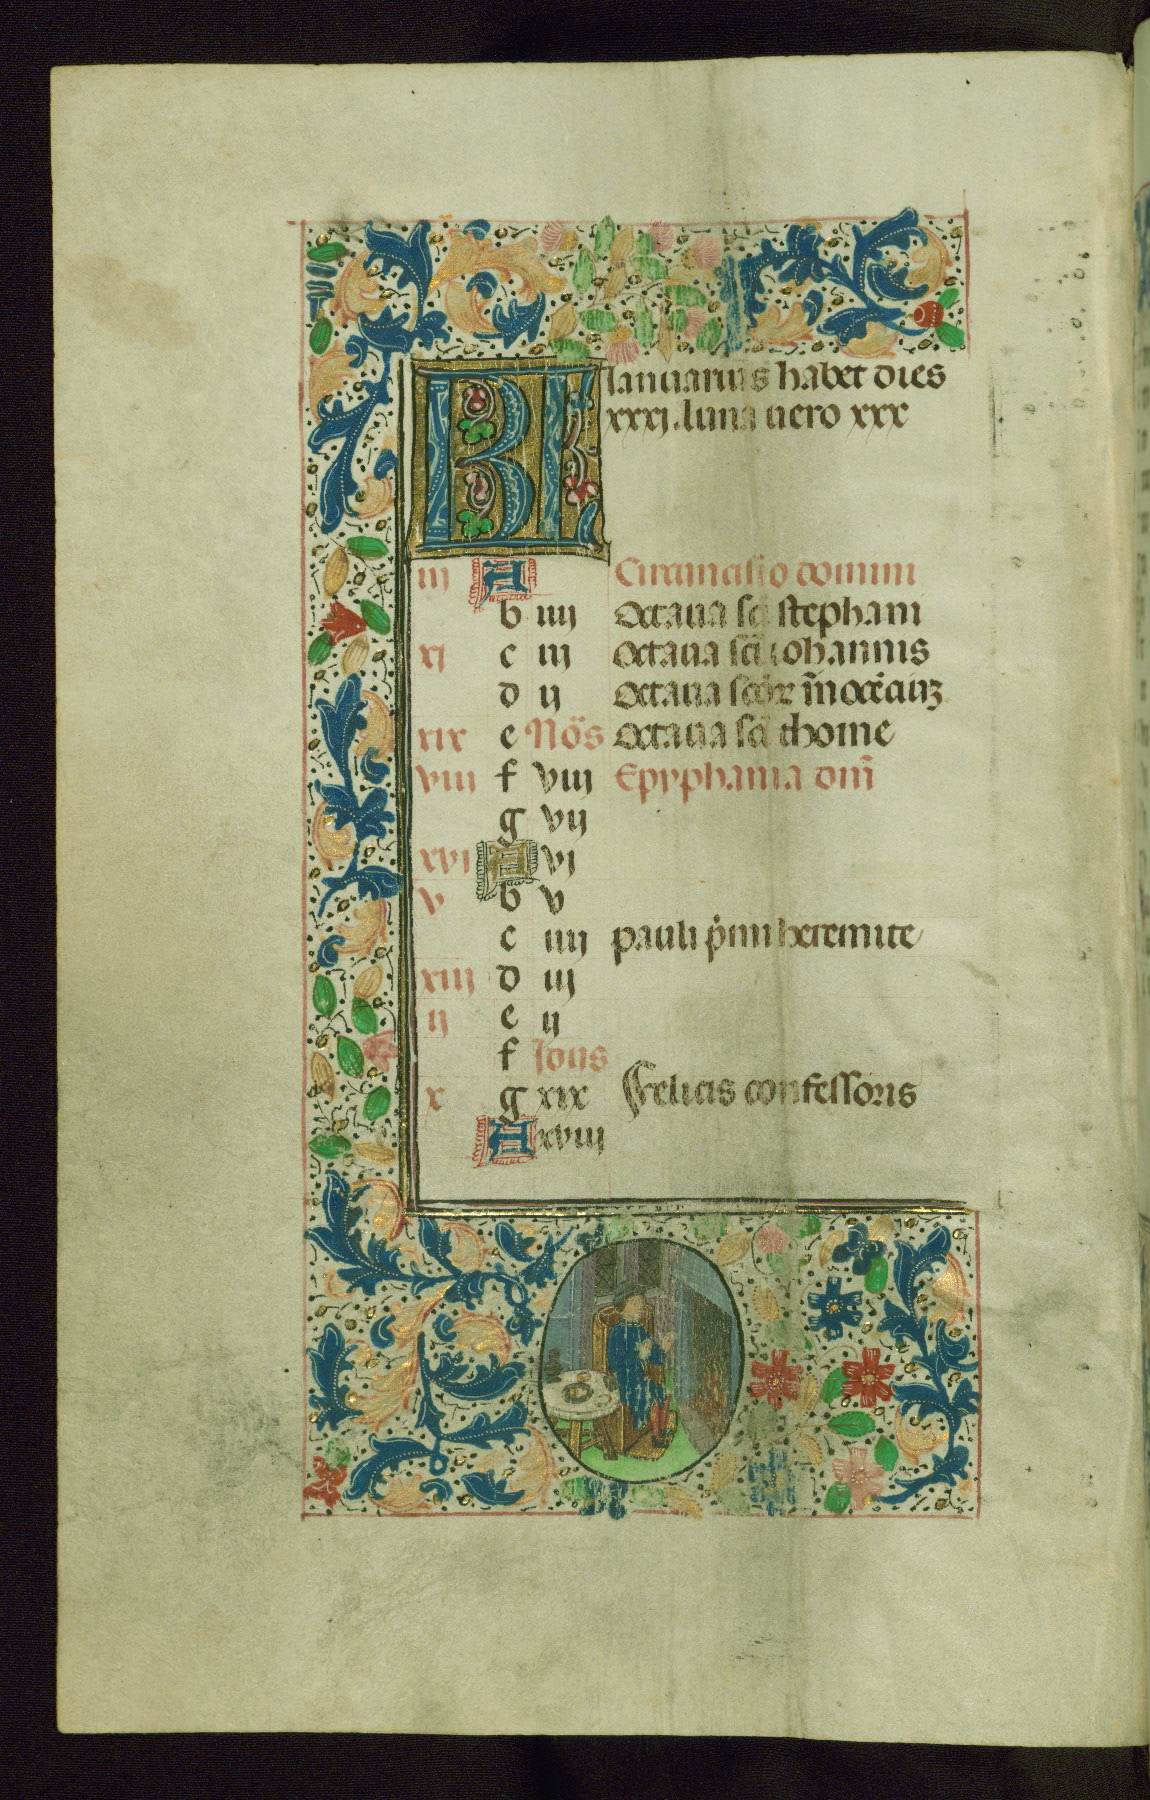 KL Ianuarius habet dies
xxxj. luna uero xxx
iij A Circumcisio domini
b iiij Octaua sci stephani
xj c iij Octaua sci iohannis
d ij Octaua scõr ĩnocẽtiuʒ
xix e Nõs Octaua sci thome
viij f viij Epyphania dnĩ
g vij
xvj A vj
v b v
c iiij pauli pͥmi heremite
xiij d iij
ij e ij
f Idus
x g xix Felicis confessoris
A xviij